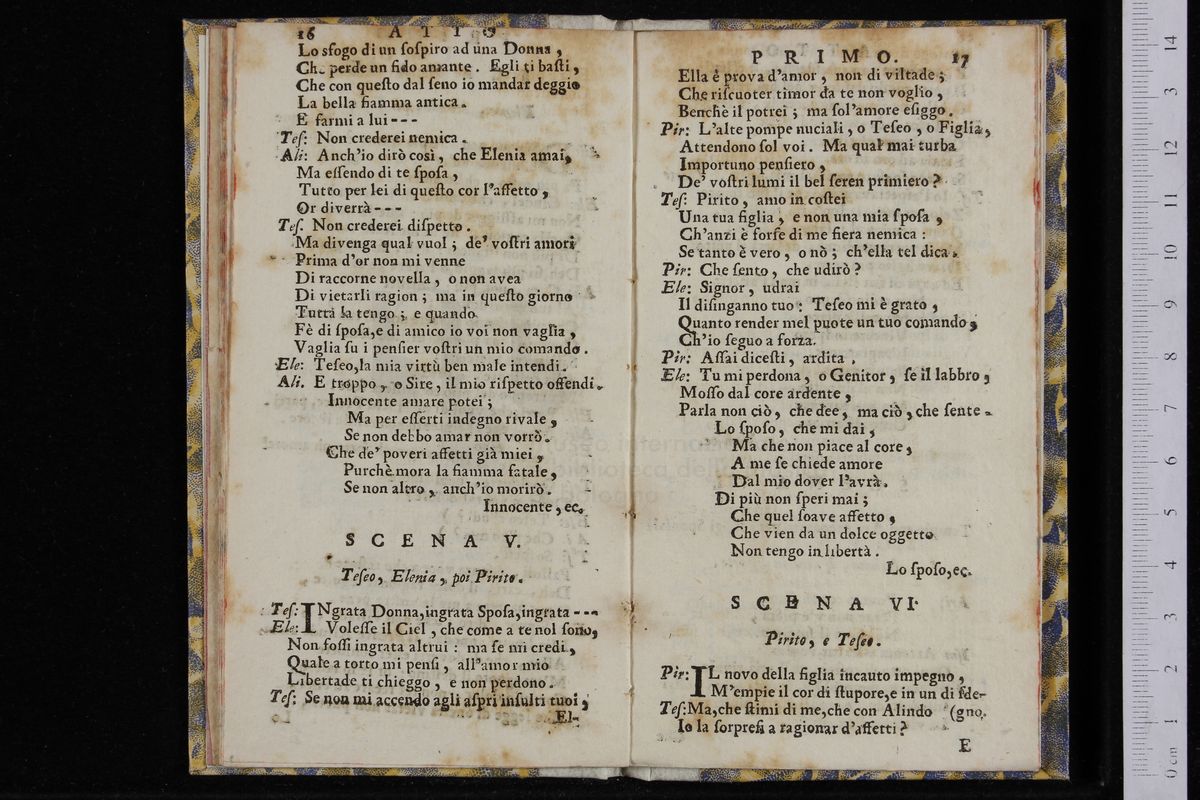 16 ATTO
Lo sfogo di un sospiro ad una Donna,
Che perde un fido amante. Egli ti basti,
Che con questo dal seno io mandar deggio
La bella fiamma antica.
E farmi a lui---
Tes: Non crederei nemica.
Ali: Anch'io dirò così, che Elenia amai,
Ma essendo di te sposa,
Tutto per lei di questo cor l'affetto,
Or diverrà---
Tes. Non crederei dispetto.
Ma divenga qual vuol; de' vostri amori
Prima d'or non mi venne
Di raccorne novella, o non avea
Di vietarli ragion; ma in questo giorno
Tutta la tengo; e quando
Fè di sposa,e di amico io voi non vaglia,
Vaglia su i pensier vostri un mio comando.
Ele: Teseo,la mia virtù ben male intendi.
Ali. E troppo, o Sire, il mio rispetto offendi.
Innocente amare potei;
Ma per esserti indegno rivale,
Se non debbo amar non vorrò.
Che de' poveri affetti già miei,
Purchè mora la fiamma fatale,
Se non altro, anch'io morirò.
Innocente, ec.
SCENA V.
Teseo, Elenia, poi Pirito.
Tes: INgrata Donna,ingrata Sposa,ingrata---
Ele: Volesse il Ciel, che come a te nol sono,
Non fossi ingrata altrui: ma se mi credi,
Quale a torto mi pensi, all'amor mio
Libertade ti chieggo, e non perdono.
Tes: Se non mi accendo agli aspri insulti tuoi,
El-
PRIMO. 17
Ella è prova d'amor, non di viltade;
Che riscuoter timor da te non voglio,
Benchè il potrei; ma sol'amore esiggo.
Pir: L'alte pompe nuciali, o Teseo, o Figlia,
Attendono sol voi. Ma qual mai turba
Importuno pensiero,
De' vostri lumi il bel seren primiero?
Tes: Pirito, amo in costei
Una tua figlia, e non una mia sposa,
Ch'anzi è forse di me fiera nemica:
Se tanto è vero, o nò; ch'ella tel dica.
Pir: Che sento, che udirò?
Ele: Signor, udrai
Il disinganno tuo: Teseo mi è grato,
Quanto render mel puote un tuo comando,
Ch'io seguo a forza.
Pir: Assai dicesti, ardita.
Ele: Tu mi perdona, o Genitor, se il labbro,
Mosso dal core ardente,
Parla non ciò, che dee, ma ciò, che sente.
Lo sposo, che mi dai,
Ma che non piace al core,
A me se chiede amore
Dal mio dover l'avrà.
Di più non speri mai;
Che quel soave affetto,
Che vien da un dolce oggetto
Non tengo in libertà.
Lo sposo,ec.
SCENA VI.
Pirito, e Teseo.
Pir: IL novo della figlia incauto impegno,
M'empie il cor di stupore,e in un di sde-
Tes:Ma,che stimi di me,che con Alindo (gno.
Io la sorpresi a ragionar d'affetti?
E